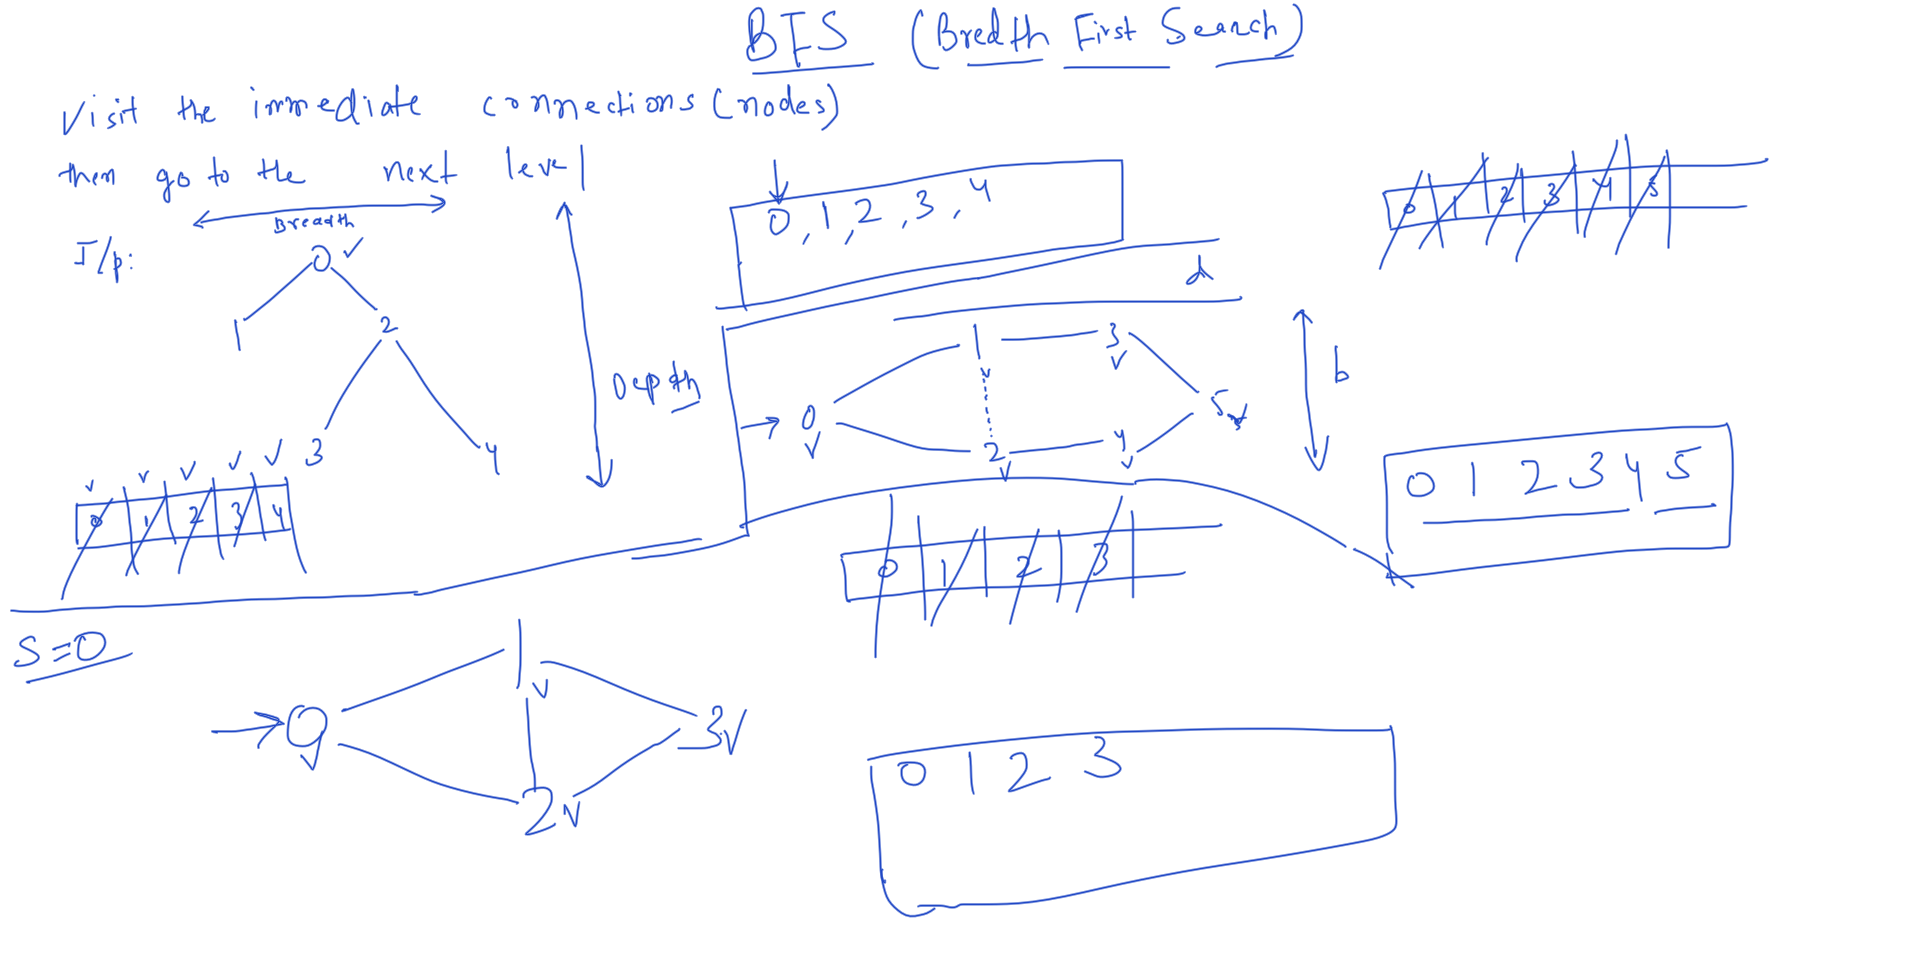 BFS (Bredth First Search)
Visit the immediate connections (nodes)
then go to the next level
Breadth
I/p:
0
1 2
3 4
Depth
0 1 2 3 4
0, 1, 2, 3, 4
d
0 1 2 3 4 5
1 3
0 5
2 4
b
0 1 2 3 4 5
0 1 2 3
S=0
1
0 3
2
0 1 2 3